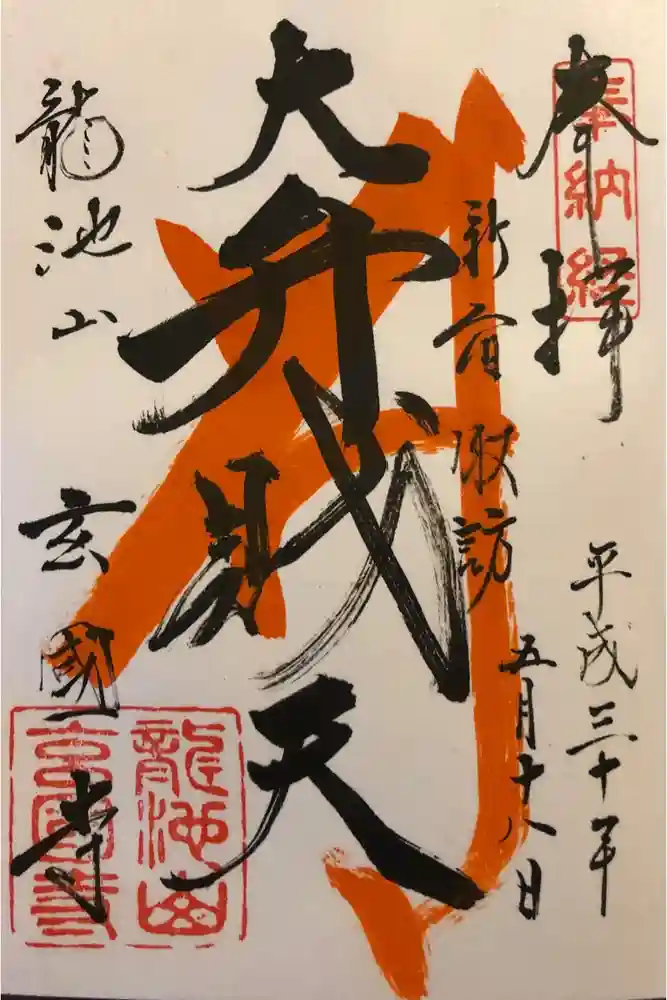 奉拝
奉納経
平成三十年
五月十八日
新宿諏訪
大弁財天
龍池山
玄國寺
龍池山
玄國寺